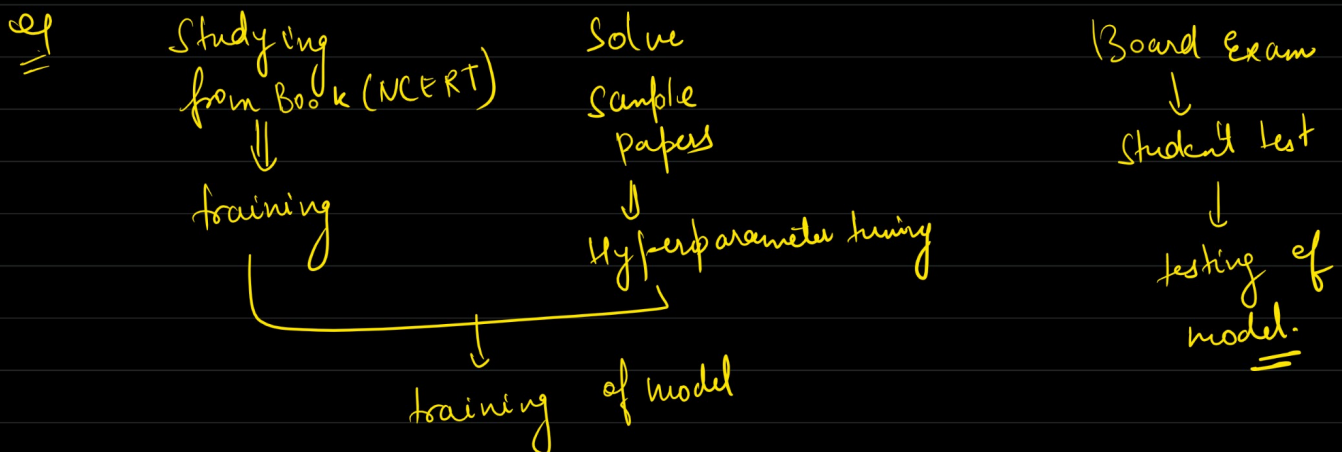 eg
Studying
from Book (NCERT)
training
Solve
Sample
papers
Hyperparameter tuning
training of model
Board Exam
Student test
testing of
model.